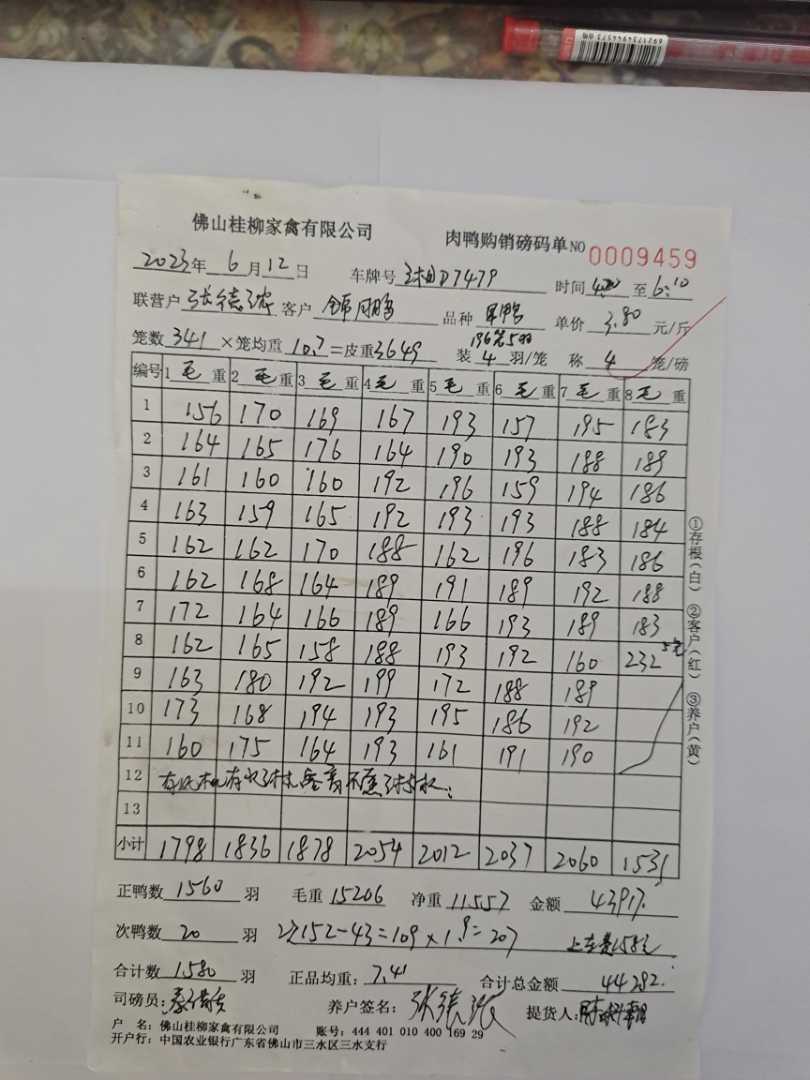 6921734944573
佛山桂柳家禽有限公司 肉鸭购销磅码单 NO 0009459
2023年 6月12日 车牌号 D7479 时间 至 6:10
联营户 张德 客户 品种 鸭 单价 3.80 元/斤
笼数 341 ×笼均重 10.7 =皮重 3649 装 4 羽/笼 称 4 笼/磅
编号 1 毛 重 2 毛 重 3 毛 重 4 毛 重 5 毛 重 6 毛 重 7 毛 重 8 毛 重
1 156 170 169 167 193 157 195 183
2 164 165 176 164 190 193 188 189
3 161 160 160 192 196 159 194 186
4 163 159 165 192 193 193 188 184
5 162 162 170 188 162 196 183 186
6 162 168 164 189 191 189 192 188
7 172 164 166 189 166 193 189 183
8 162 165 158 188 193 192 160 232
9 163 180 192 199 172 188 189
10 173 168 194 193 195 186 192
11 160 175 164 193 161 191 190
12
13
小计 1798 1836 1878 2054 2012 2037 2060 1531
正鸭数 1560 羽 毛重 15206 净重 11557 金额 43917.
次鸭数 20 羽 152-43=109×1.9=207 上车费158元
合计数 1580 羽 正品均重: 7.41 合计总金额 44282.
司磅员: 养户签名: 张德 提货人:
户 名: 佛山桂柳家禽有限公司 账号: 444 401 010 400 169 29
开户行: 中国农业银行广东省佛山市三水区三水支行
①存根(白) ②客户(红) ③养户(黄)